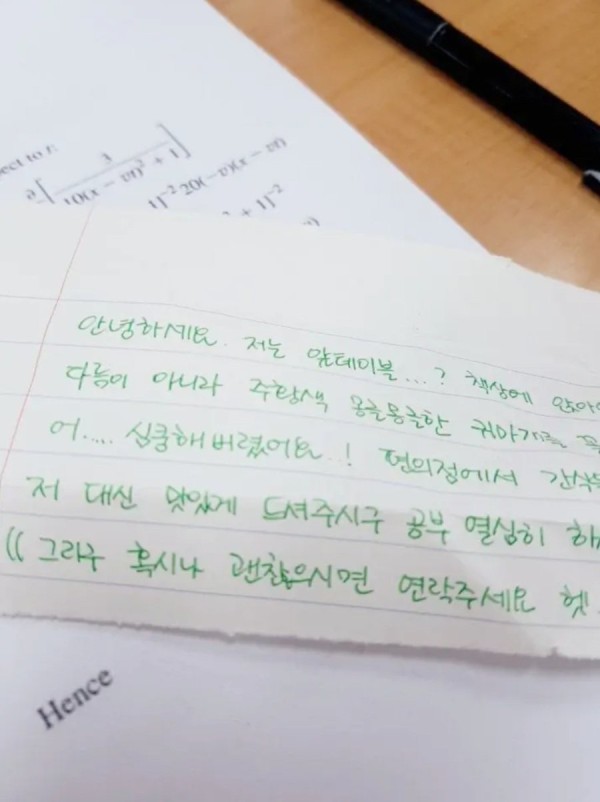 ect to t:
∂[3 / 10(x − vt)² + 1]
1]⁻² 20(−v)(x − vt)
+ 1]⁻²
안녕하세요. 저는 앞테이블...? 책상에 앉아
다름이 아니라 주황색 몽글몽글한 귀마개를
어..... 심쿵해버렸어요..! 편의점에서 간식
저 대신 맛있게 드셔주시구 공부 열심히
(( 그리구 혹시나 괜찮으시면 연락주세요 헷.
Hence